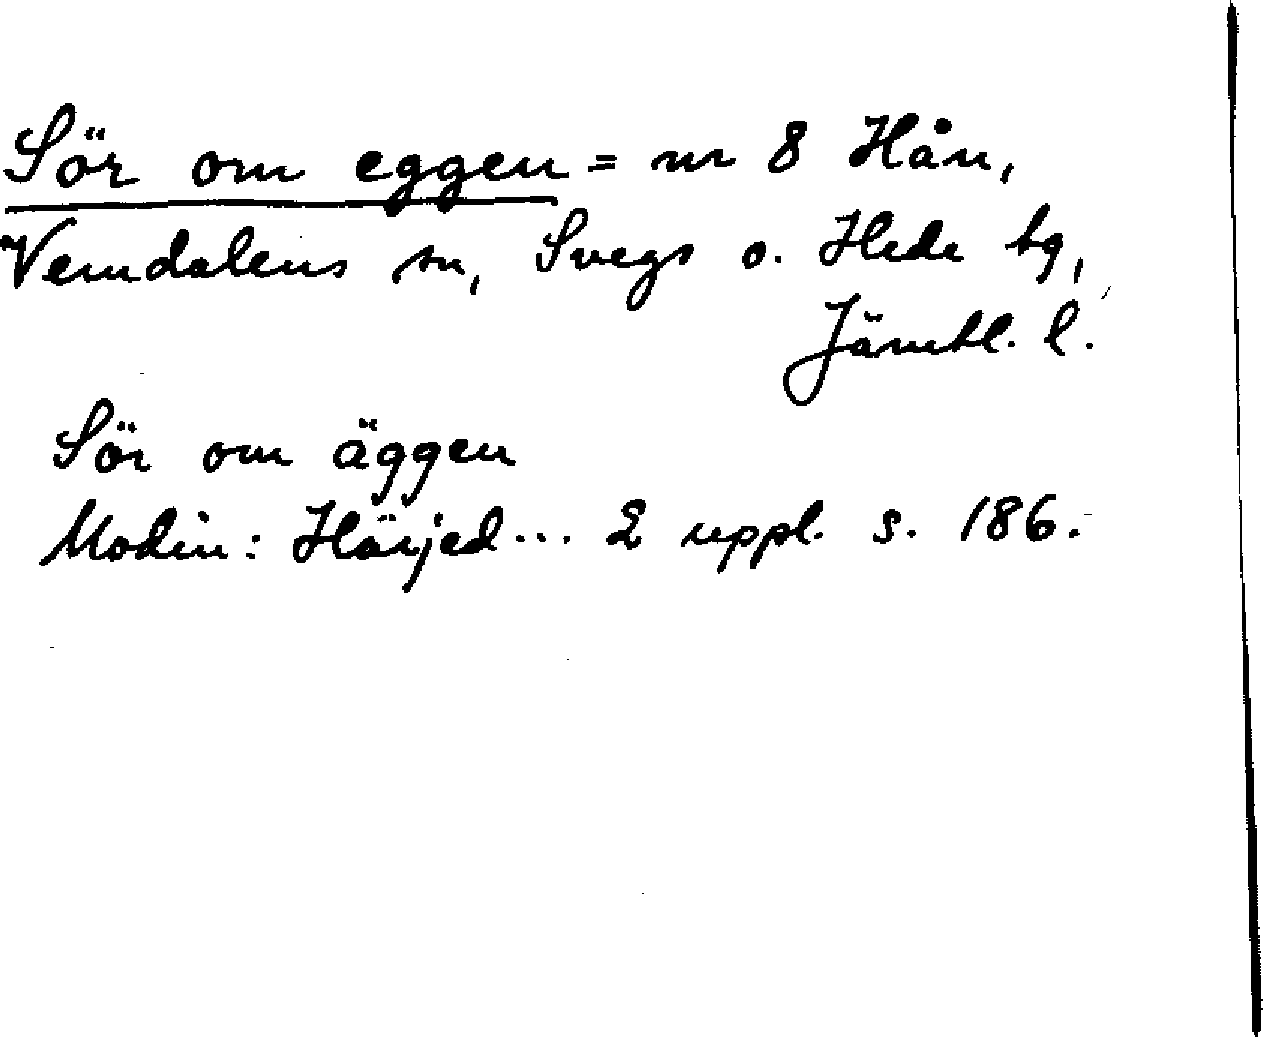 Sör om eggen = nr 8 Hån,
Vemdalens sn, Svegs o. Hede tg,
Jämtl. l.
Sör om äggen
Modin: Härjed... 2 uppl. s. 186.